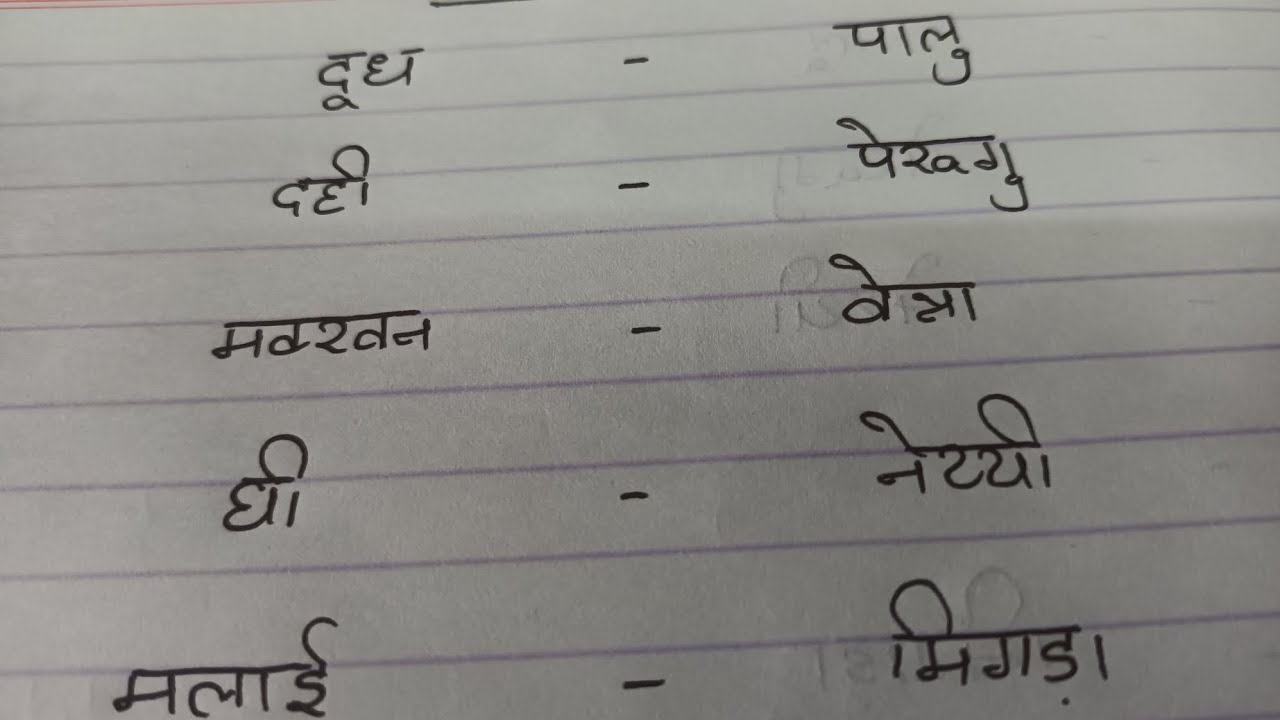 दूध - पालु
दही - पेरूगु
मक्खन - वेन्ना
घी - नेय्यी
मलाई - मिगड़ा